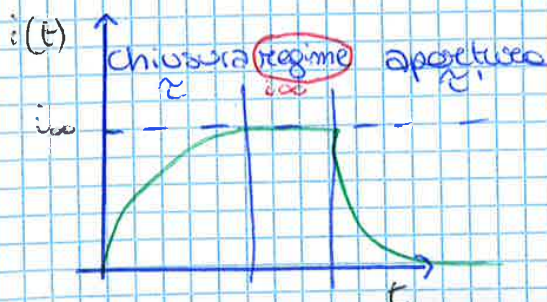 i(t)
chiusura regime apertura
τ i∞ τ'
i∞
t